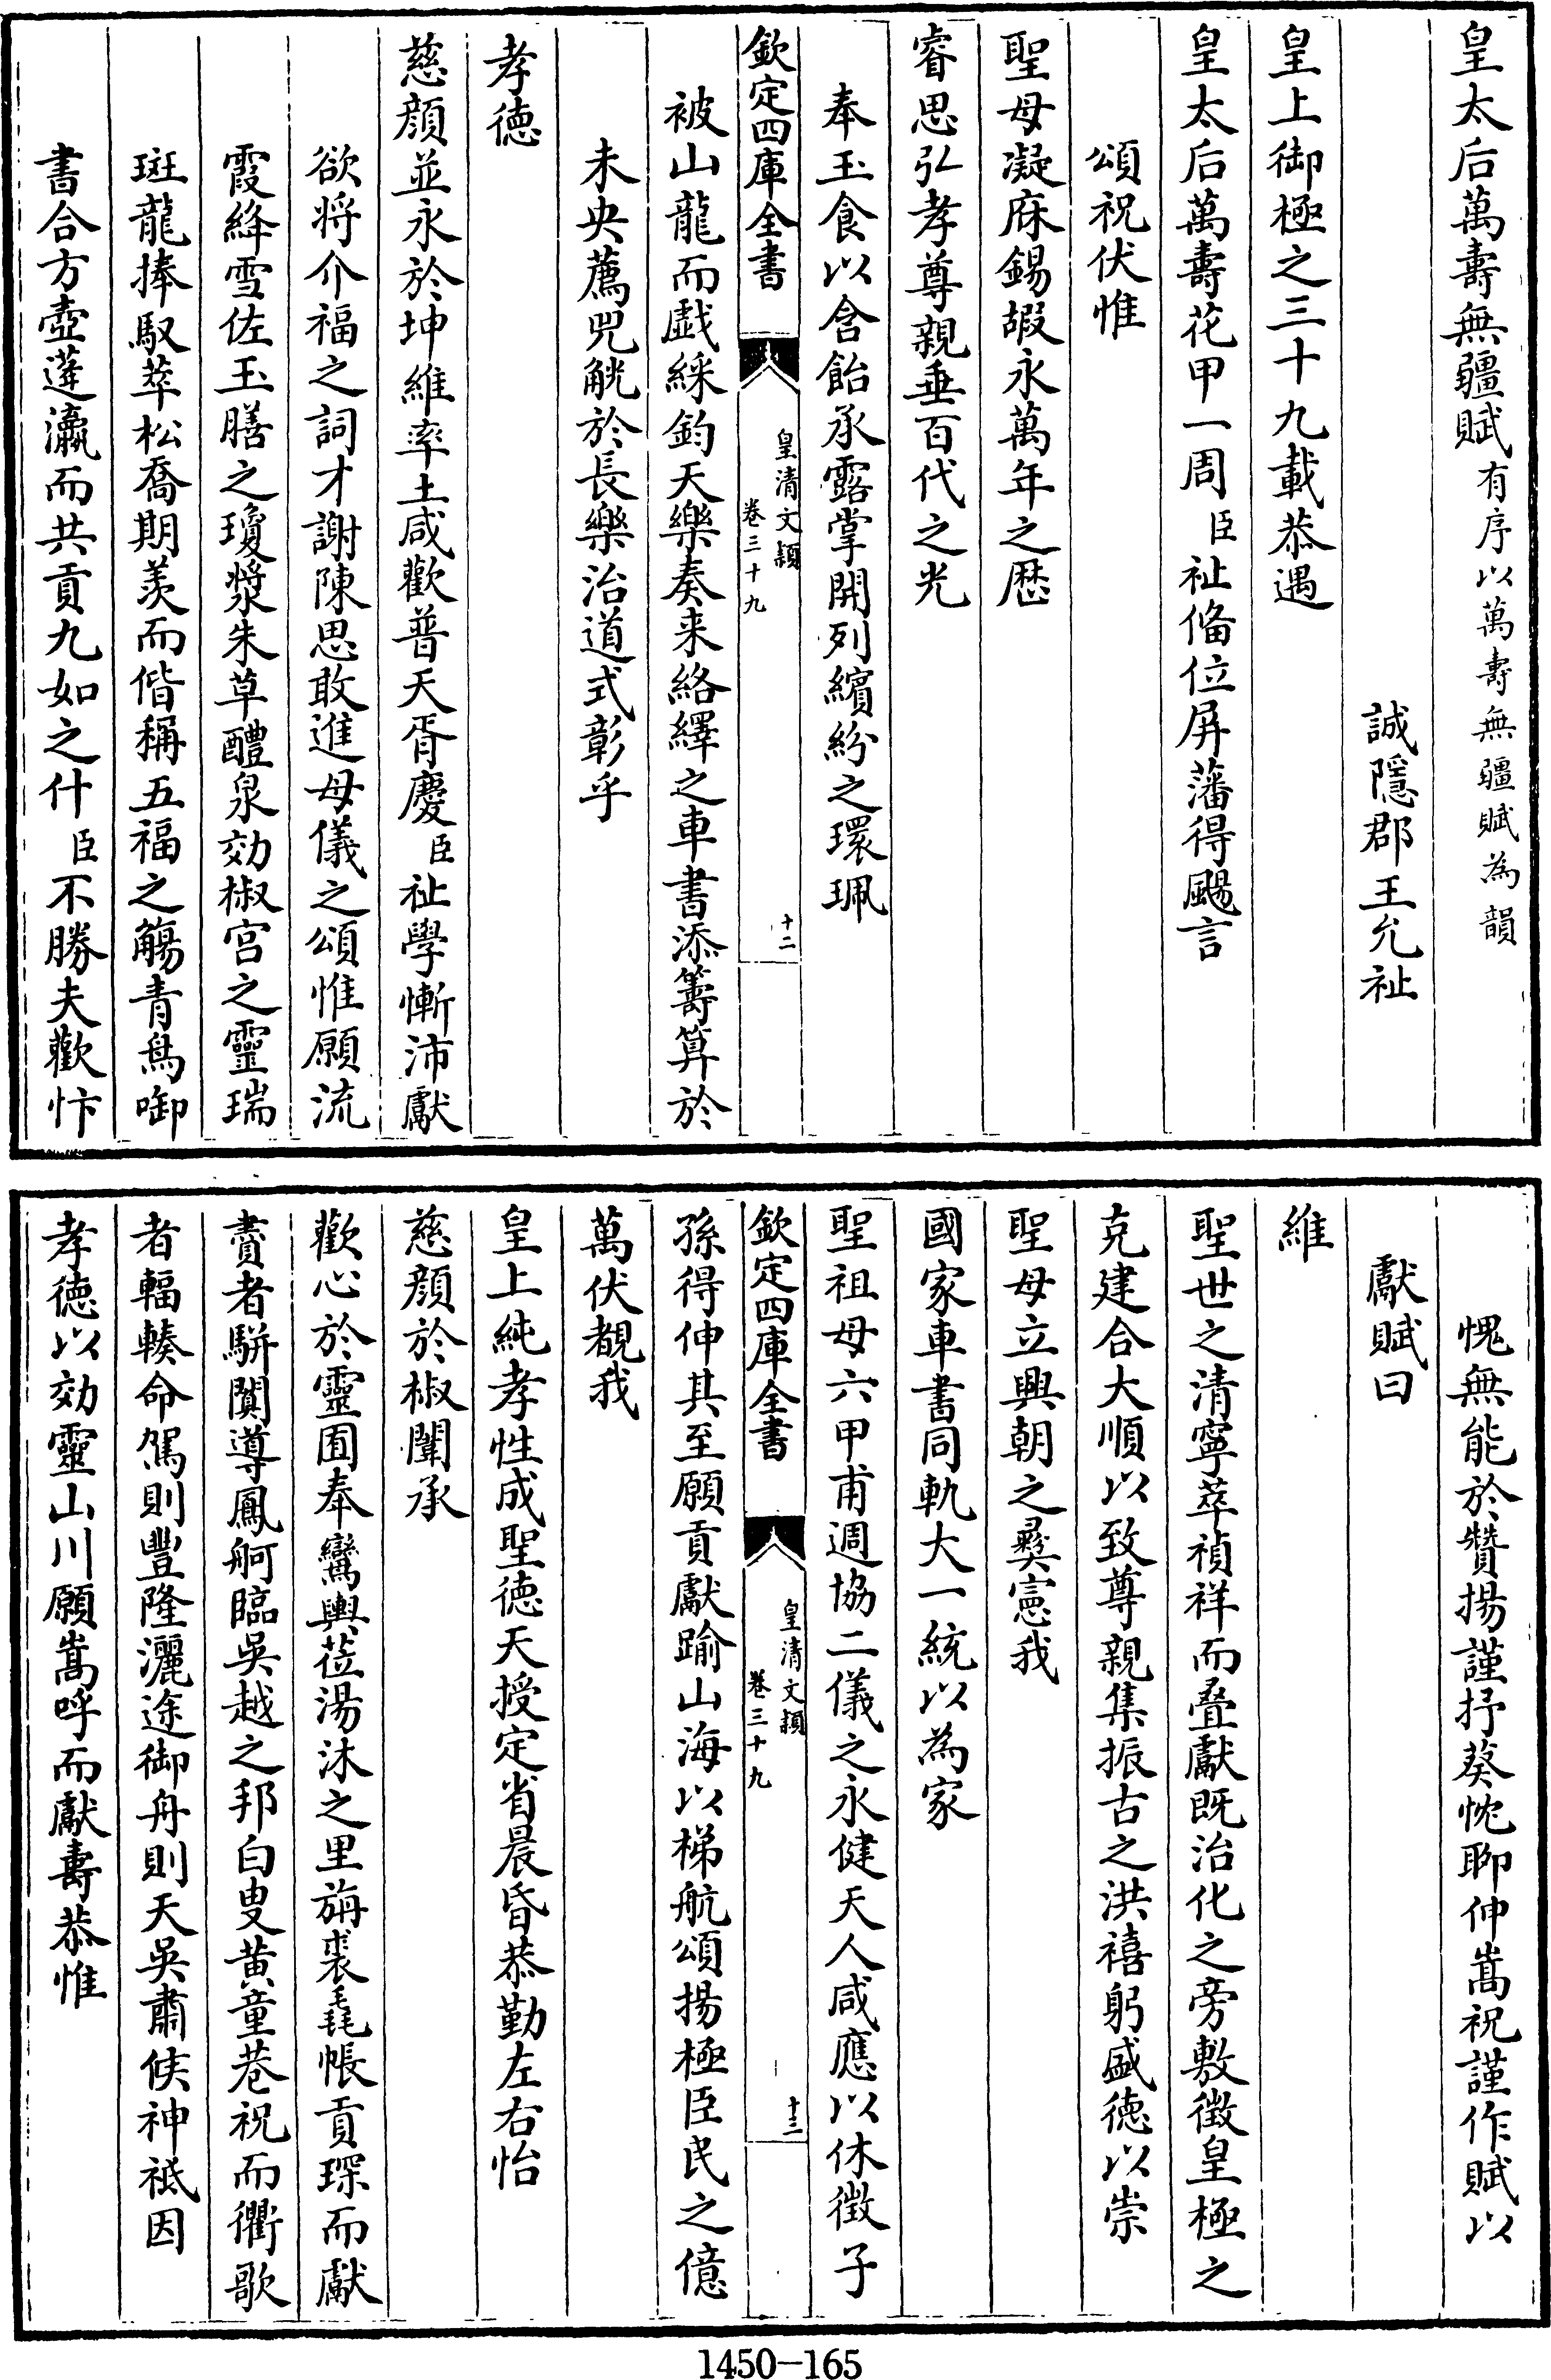 皇太后萬壽無疆賦有序以萬壽無疆賦為韻
誠隱郡王允祉
皇上御極之三十九載恭遇
皇太后萬壽花甲一周臣祉偹位屏藩得颺言
頌祝伏惟
聖母凝庥錫嘏永萬年之厯
睿思弘孝尊親垂百代之光
奉玉食以含飴承露掌開列繽紛之環珮
欽定四庫全書
皇清文穎
卷三十九
十二
被山龍而戯綵鈞天樂奏来絡繹之車書添籌算於
未央薦兕觥於長樂治道式彰乎
孝徳
慈顔並永於坤維率土咸歡普天胥慶臣祉學慚沛獻
欲将介福之詞才謝陳思敢進母儀之頌惟願流
霞絳雪佐玉膳之瓊漿朱草醴泉効椒宫之靈瑞
斑龍捧馭萃松喬期羨而偕稱五福之觴青鳥啣
書合方壺蓬瀛而共貢九如之什臣不勝夫歡忭
愧無能於贊揚謹抒葵忱聊伸嵩祝謹作賦以
獻賦曰
維
聖世之清寧萃禎祥而叠獻既治化之旁敷徴皇極之
克建合大順以致尊親集振古之洪禧躬盛徳以崇
聖母立興朝之彞憲我
國家車書同軌大一統以為家
聖祖母六甲甫週協二儀之永健天人咸應以休徴子
欽定四庫全書
皇清文穎
卷三十九
十三
孫得伸其至願貢獻踰山海以梯航頌揚極臣民之億
萬伏覩我
皇上純孝性成聖徳天授定省晨昏恭勤左右怡
慈顔於椒闈承
歡心於靈囿奉鸞輿莅湯沐之里旃裘毳帳貢琛而獻
賮者駢闐導鳳舸臨吳越之邦白叟黄童巷祝而衢歌
者輻輳命駕則豐隆灑途御舟則天吳肅候神祗因
孝徳以効靈山川願嵩呼而獻壽恭惟
1450—165